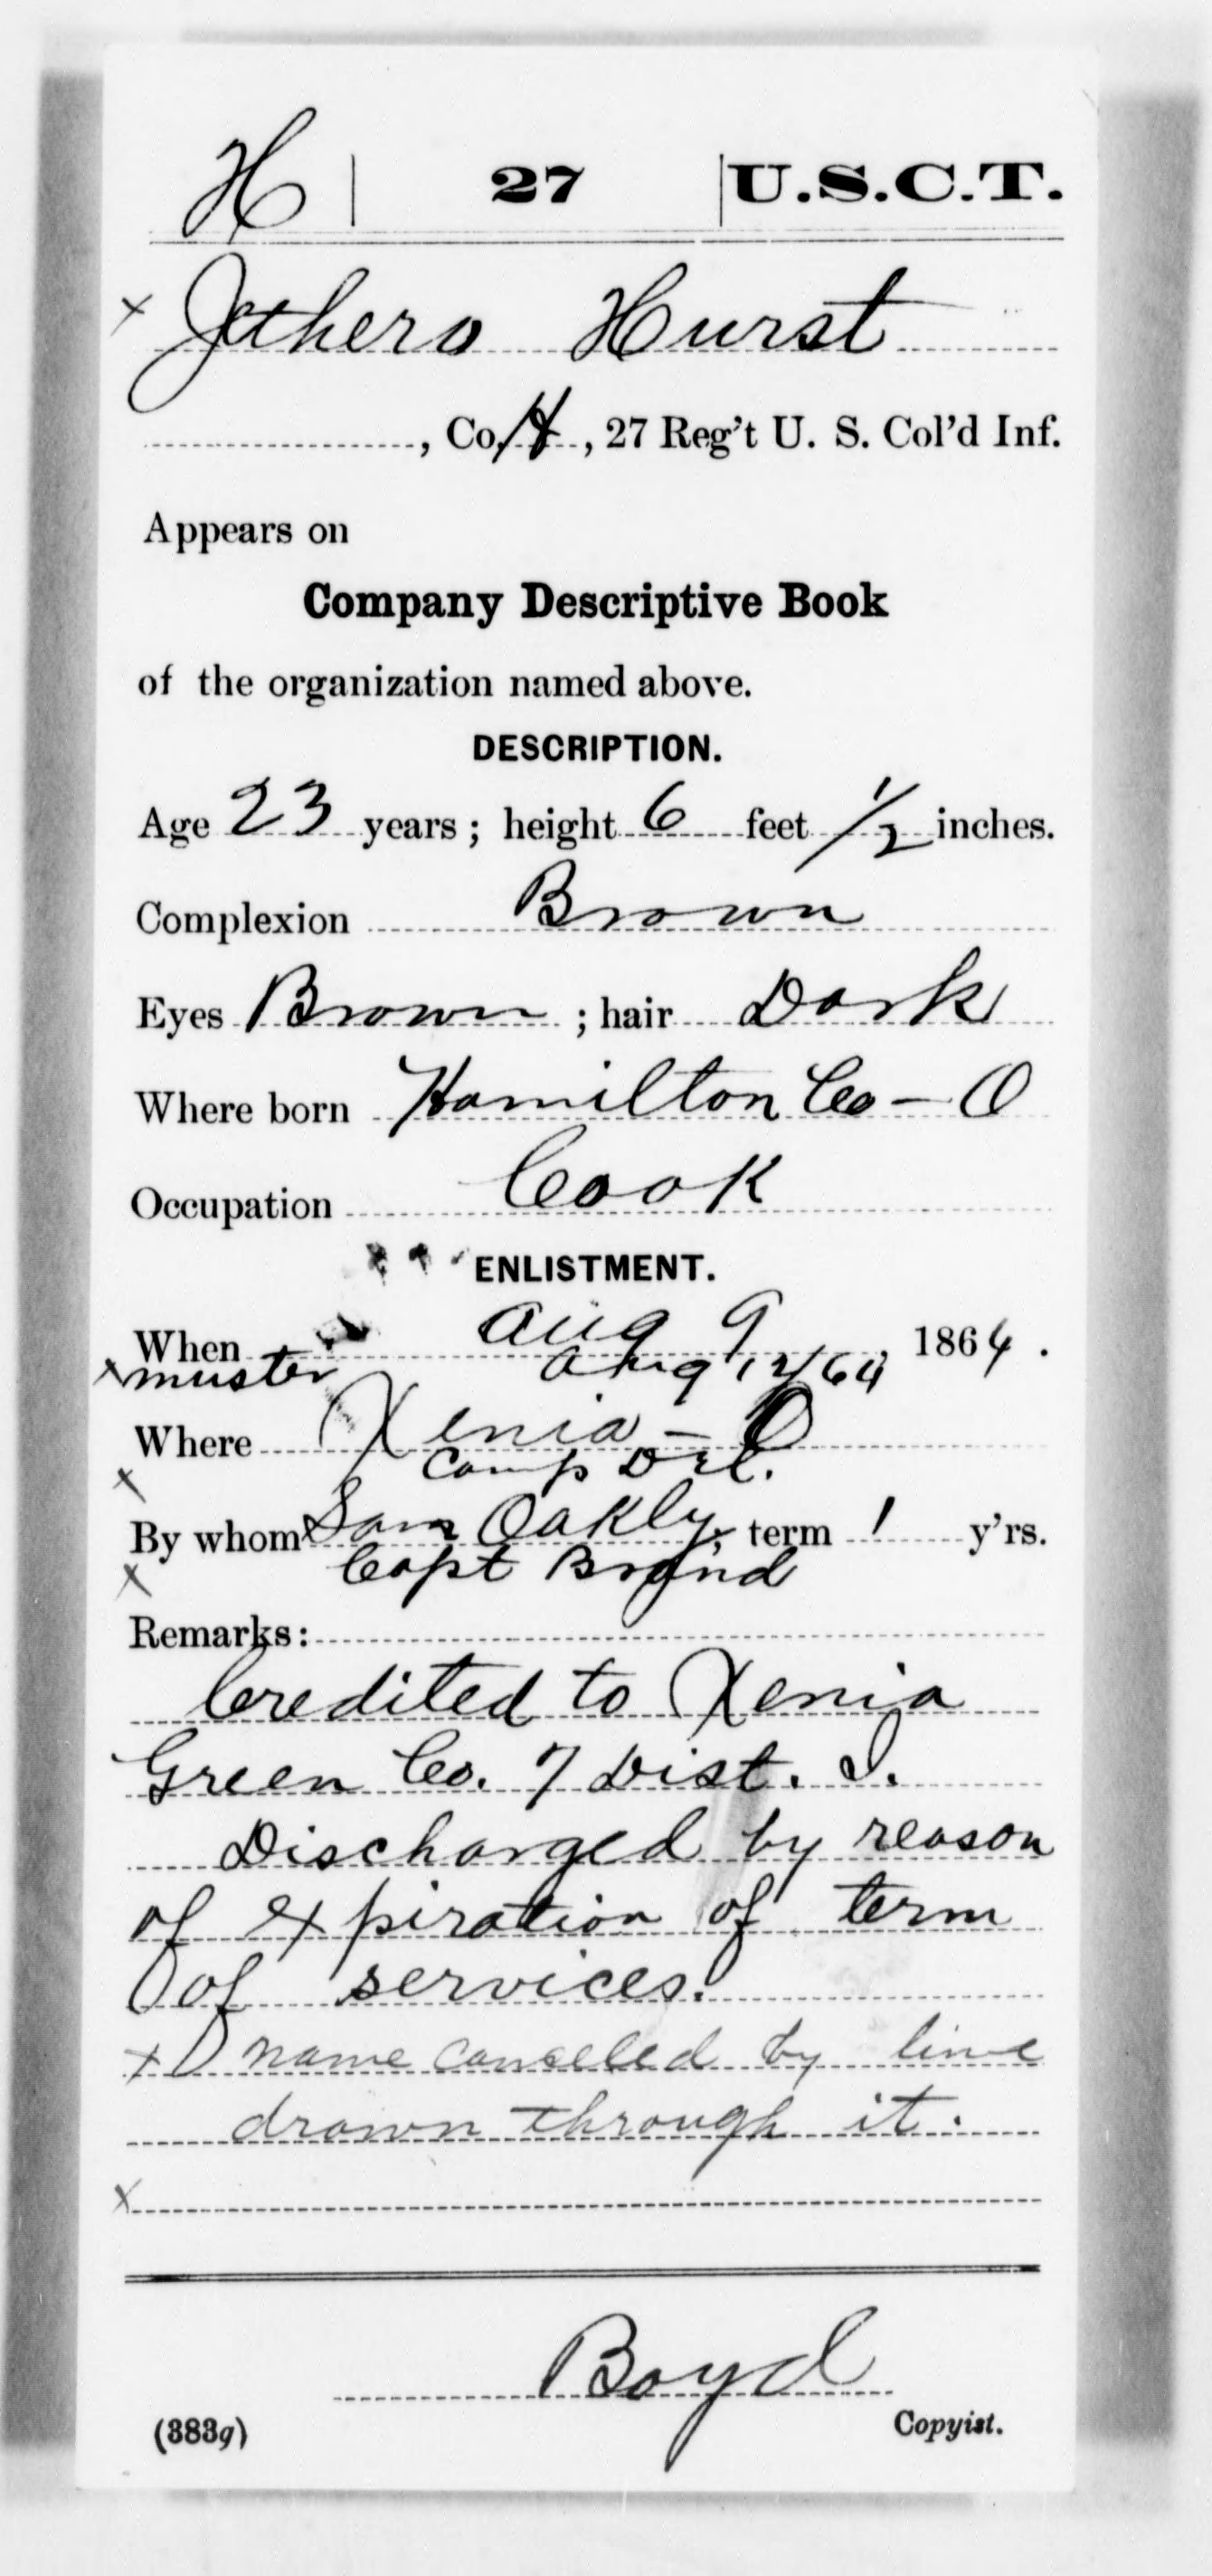 H | 27 | U.S.C.T.
x Jethero Hurst
, Co. H, 27 Reg't U. S. Col'd Inf.
Appears on
Company Descriptive Book
of the organization named above.
DESCRIPTION.
Age 23 years; height 6 feet 1/2 inches.
Complexion Brown
Eyes Brown; hair Dark
Where born Hamilton Co - O
Occupation Cook
ENLISTMENT.
When Aug 9, 1864.
x muster Aug 12/64
Where Xenia - O
x Camp Del.
By whom Sam Oakly; term 1 y'rs.
x Capt
Remarks:
Credited to Xenia
Green Co. 7 Dist. O.
Discharged by reason
of expiration of term
of services.
x name canceled by line
drawn through it.
x
Boyd
(383g) Copyist.